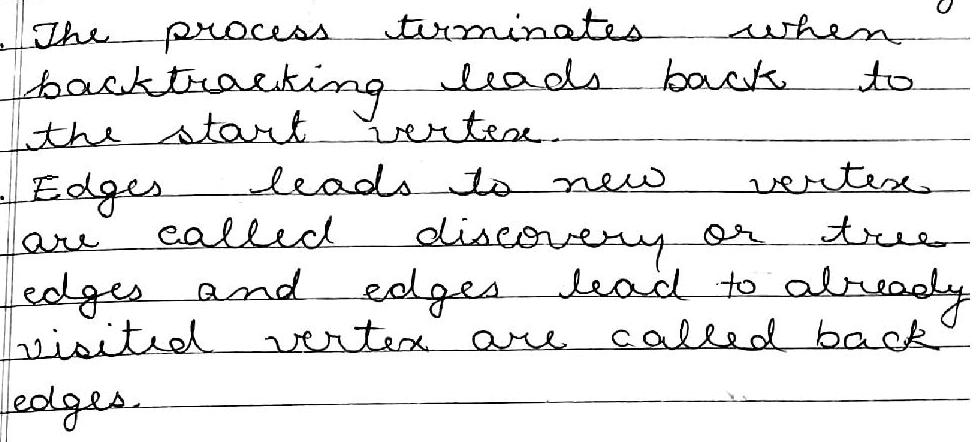 . The process terminates when
backtracking leads back to
the start vertex.
. Edges leads to new vertex
are called discovery or tree
edges and edges lead to already
visited vertex are called back
edges.